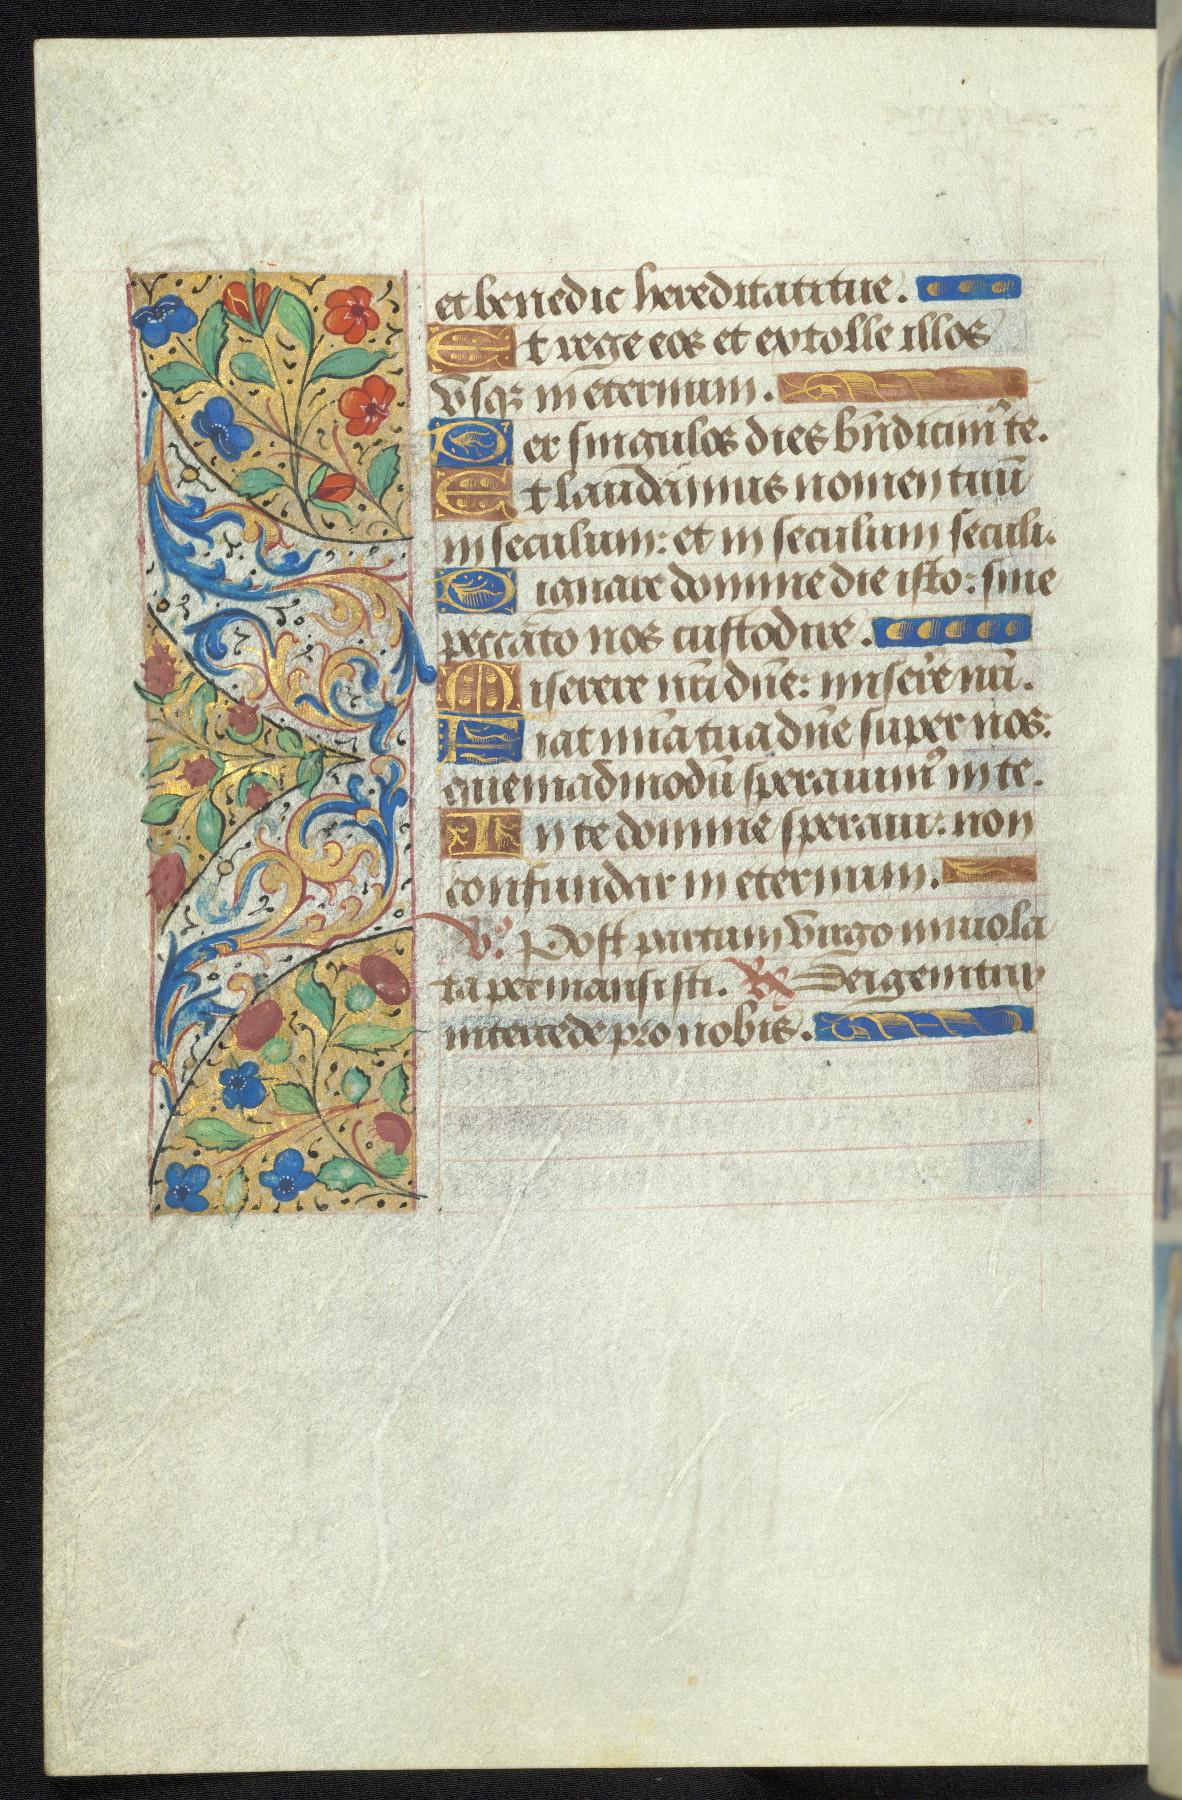 et benedic hereditati tue.
Et rege eos et extolle illos
vsqz in eternum.
Per singulos dies bñdicim᷒ te.
Et laudamus nomen tuū
in seculum: et in seculum seculi.
Dignare domine die isto: sine
peccāto nos custodire.
Miserere nr̄i dñe: miserē nr̄i.
Fiat mīa tua dñe super nos:
quemadmodū sperauim᷒ in te.
In te domine speraui: non
confundar in eternum.
V̷. Post partum virgo inuiola
ta permansisti. R̷ Dei genitrix
intercede pro nobis.